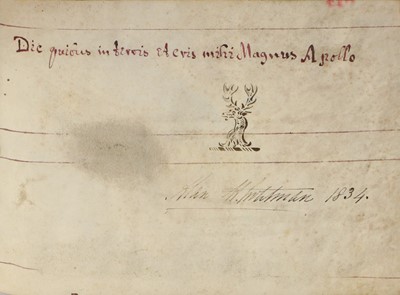 Dic quibus in terris et eris mihi Magnus Apollo
Whitman 1834.